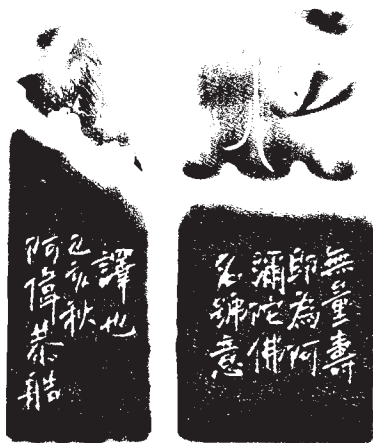 無量壽
即為阿
彌陀佛
名號意
譯也
己亥秋
阿偉恭皓